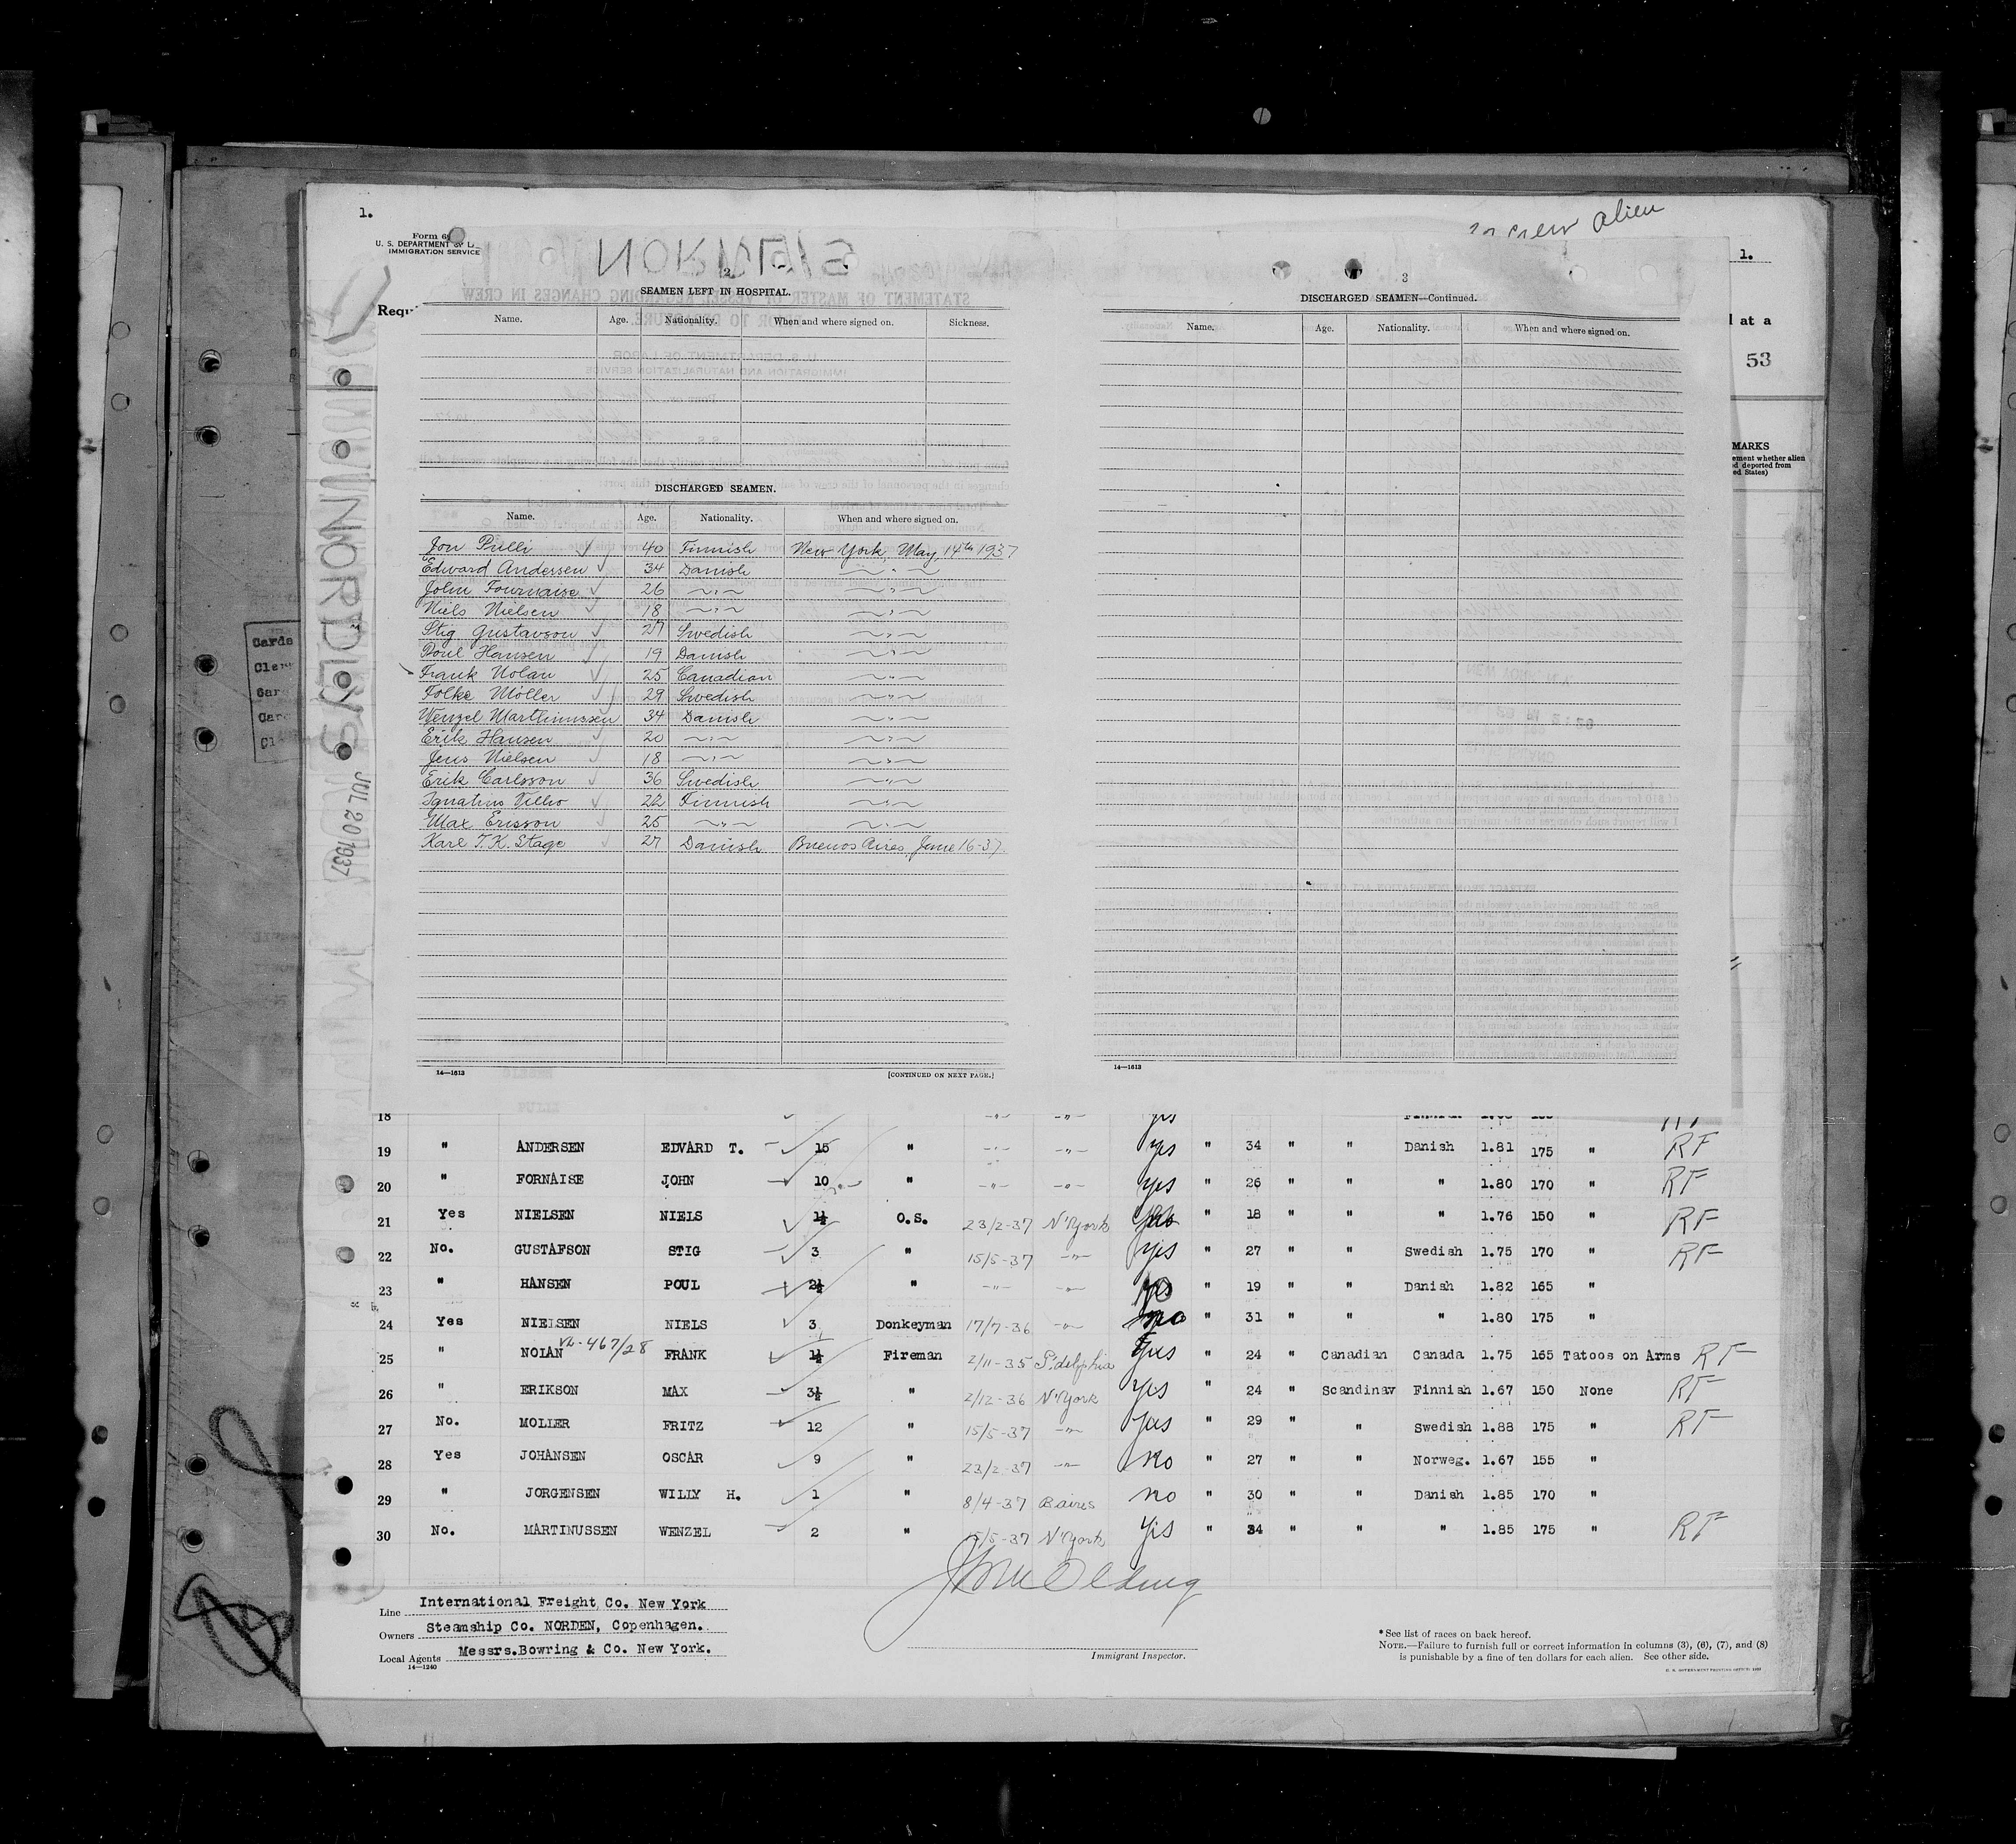 1.
Form 6
U. S. DEPARTMENT OF L
IMMIGRATION SERVICE
crew alien
1.
NORDLYS
Requ
at a
53
MARKS
ement whether alien
d deported from
ed States)
2
SEAMEN LEFT IN HOSPITAL.
Name. Age. Nationality. When and where signed on. Sickness.
DISCHARGED SEAMEN.
Name. Age. Nationality. When and where signed on.
Jon Pulli ✓ 40 Finnish New York May, 14th 1937
Edward Andersen ✓ 34 Danish ~ " ~
John Fournaise ✓ 26 ~ " ~ ~ " ~
Niels Nielsen ✓ 18 ~ " ~ ~ " ~
Stig Gustavson ✓ 27 Swedish ~ " ~
Poul Hansen ✓ 19 Danish ~ " ~
Frank Nolan ✓ 25 Canadian ~ " ~
Folke Möller ✓ 29 Swedish ~ " ~
Wenzel Marthinussen ✓ 34 Danish ~ " ~
Erik Hansen ✓ 20 ~ " ~ ~ " ~
Jens Nielsen ✓ 18 ~ " ~ ~ " ~
Erik Carlsson ✓ 36 Swedish ~ " ~
Ignatius Vilho ✓ 22 Finnish ~ " ~
Max Ericson ✓ 25 ~ " ~ ~ " ~
Karl T.K. Stage ✓ 27 Danish Buenos Aires, June 16-37.
14—1613
[CONTINUED ON NEXT PAGE.]
3
DISCHARGED SEAMEN—Continued.
Name. Age. Nationality. When and where signed on.
14—1613
NORDLYS
JUL 20 1937
Cards
Cler
Car
Car
Cl
18 -"- -"- yes
19 " ANDERSEN EDVARD T. ✓ 15 " -"- -"- yes " 34 " " Danish 1.81 175 " RF
20 " FORNAISE JOHN ✓ 10 " -"- -"- yes " 26 " " " 1.80 170 " RF
21 Yes NIELSEN NIELS ✓ 1½ O.S. 23/2-37 N'York " 18 " " " 1.76 150 " RF
22 No. GUSTAFSON STIG ✓ 3 " 15/5-37 -"- yes " 27 " " Swedish 1.75 170 " RF
23 " HANSEN POUL ✓ 2½ " -"- -"- " 19 " " Danish 1.82 165 "
24 Yes NIELSEN NIELS ✓ 3 Donkeyman 17/7-36 -"- no " 31 " " " 1.80 175 "
467/28
25 " NOLAN FRANK ✓ 1½ Fireman 2/11-35 P.delphia yes " 24 " Canadian Canada 1.75 165 Tatoos on Arms RF
26 " ERIKSON MAX ✓ 3½ " 2/12-36 N'York yes " 24 " Scandinav Finnish 1.67 150 None RF
27 No. MOLLER FRITZ ✓ 12 " 15/5-37 -"- yes " 29 " " Swedish 1.88 175 " RF
28 Yes JOHANSEN OSCAR ✓ 9 " 23/2-37 -"- no " 27 " " Norweg. 1.67 155 "
29 " JORGENSEN WILLY H. ✓ 1 " 8/4-37 B aires no " 30 " " Danish 1.85 170 "
30 No. MARTINUSSEN WENZEL ✓ 2 " 15/5-37 N'York yes " 34 " " " 1.85 175 " RF
Line International Freight Co. New York
Owners Steamship Co. NORDEN, Copenhagen.
Local Agents Messrs.Bowring & Co. New York.
14—1240
Immigrant Inspector.
* See list of races on back hereof.
NOTE.—Failure to furnish full or correct information in columns (3), (6), (7), and (8)
is punishable by a fine of ten dollars for each alien. See other side.
U. S. GOVERNMENT PRINTING OFFICE